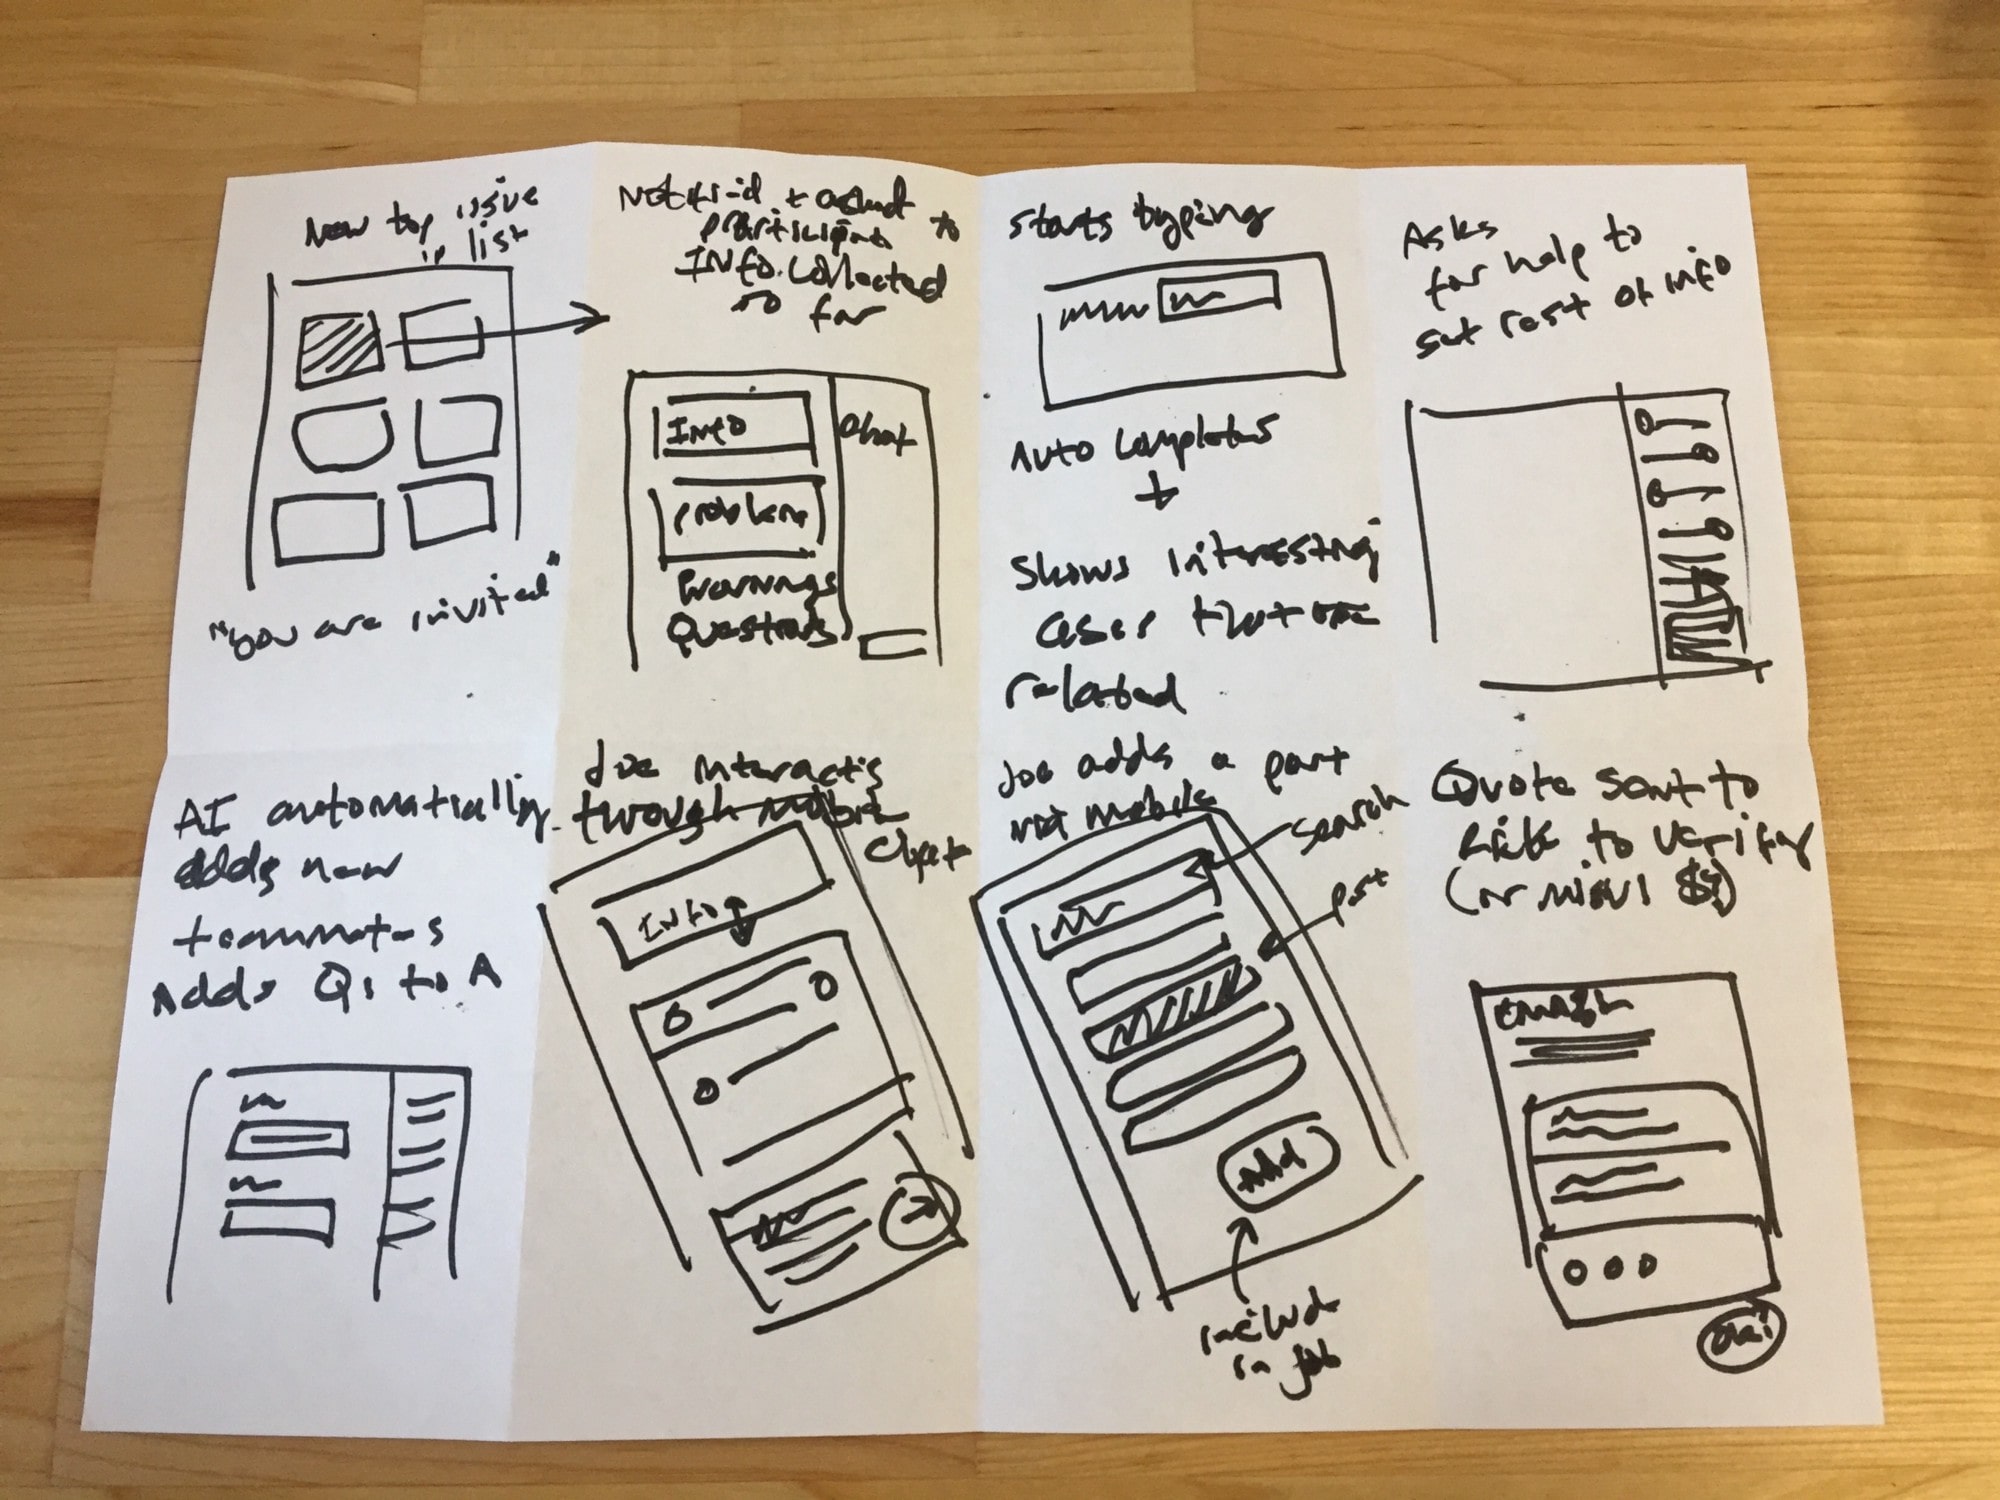 New top issue
in list
"You are invited"
+ asked to
participate
Info. collected
so far
Info
Chat
problem
Warnings
Questions
Starts typing
Auto completes
+
Shows interesting
cases that are
related
Asks
for help to
get rest of info
AI automatically
adds new
teammates
Adds Qs to A
Joe interacts
through mobile
Info
Joe adds a part
via mobile
search
part
Add
include
in job
Quote sent to
to verify
(or misui $$)